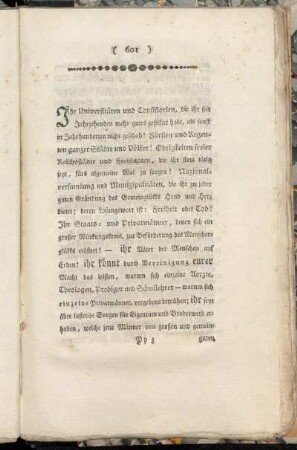 ( 601 )
Ihr Universitäten und Consistorien, die ihr seit
Jahrzehenden mehr gutes gestiftet habt, als sonst
in Jahrhunderten nicht geschah! Fürsten und Regen-
ten ganzer Städte und Völker! Obrigkeiten freier
Reichsstädte und Freistaaten, die ihr stets thätig
seyd, fürs allgemeine Wol zu sorgen! National-
versamlung und Munizipalitäten, die ihr zu jeder
guten Gründung des Gemeinglüks Hand und Herz
bietet: deren Losungswort ist: Freiheit oder Tod!
Ihr Staats- und Privatmänner, denen sich ein
großer Wirkungskreis, zur Beförderung des Menschen-
glüks eröfnet! — ihr Väter der Menschen auf
Erden! ihr könnt durch Vereinigung eurer
Macht das leisten, warum sich einzelne Aerzte,
Theologen, Prediger und Schullehrer — warum sich
einzelne Privatmänner, vergebens bemühen; ihr seyd
über lastende Sorgen für Eigennuz und Broderwerb er-
haben, welche jene Männer von großen und gemein-
Pp 5 guten,